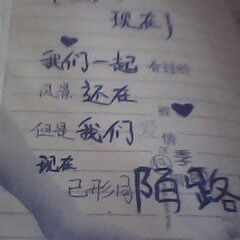 现在}
我们一起 看过的
风景 还在 被
但是 我们 爱情
现在 季
已形同 陌路